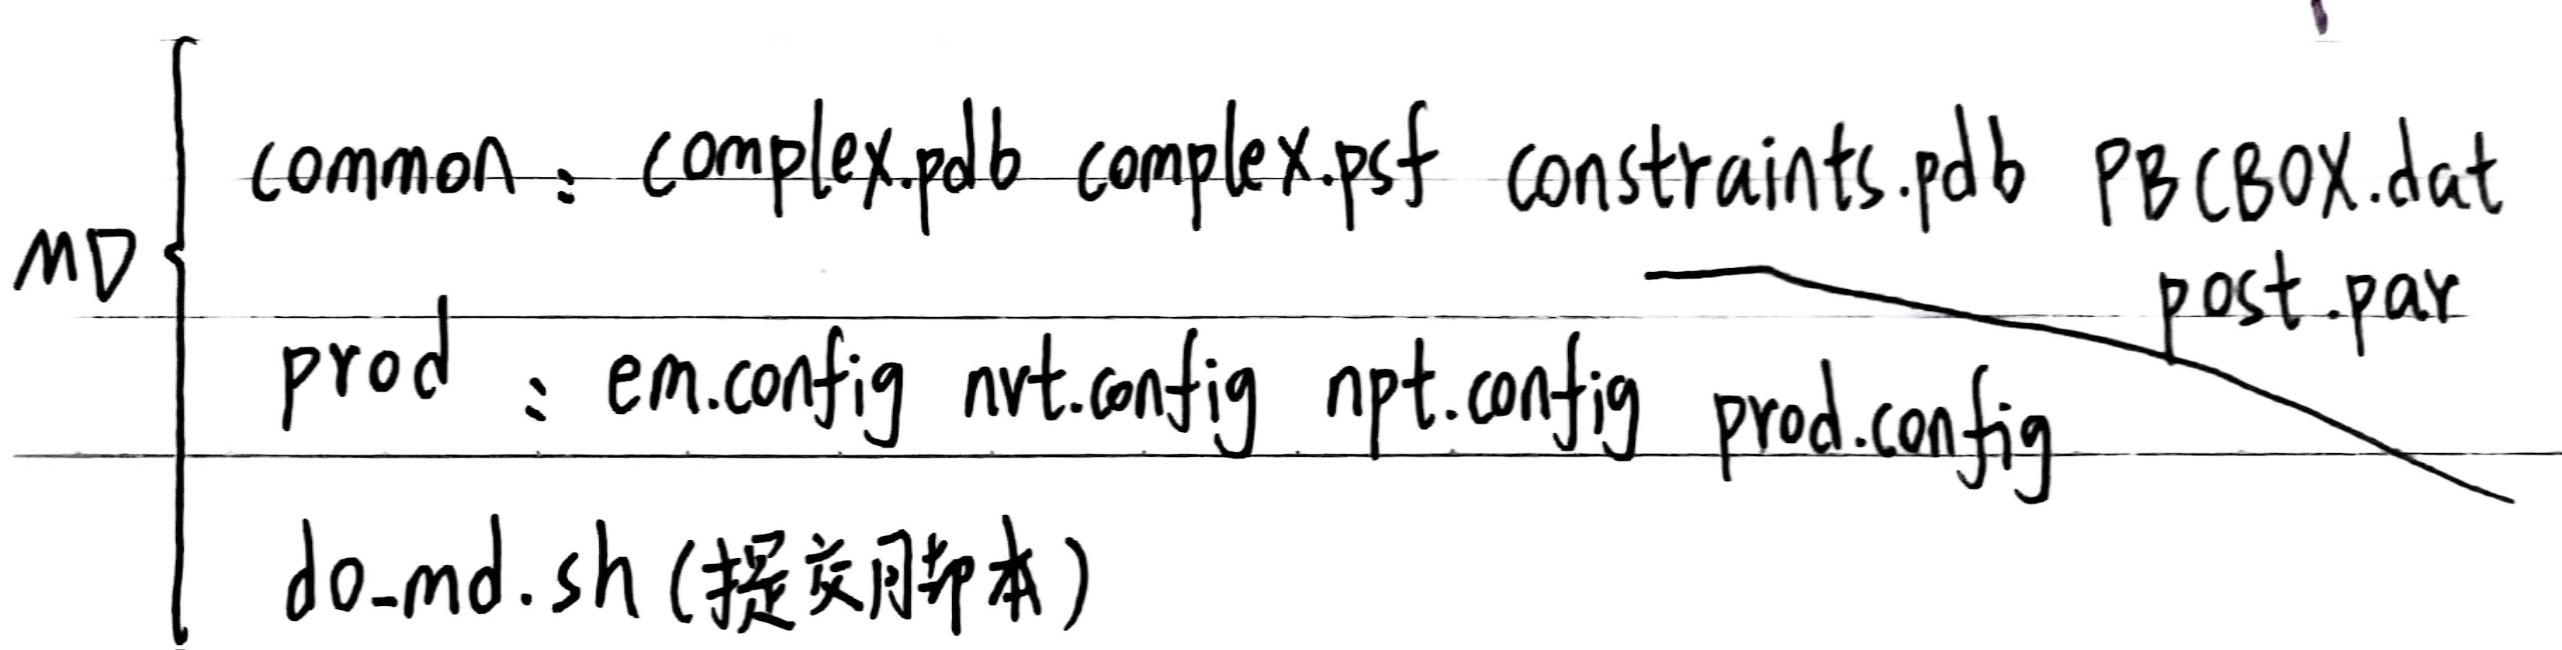 common : complex.pdb complex.psf constraints.pdb PBCBOX.dat
post.par
MD
prod : em.config nvt.config npt.config prod.config
do_md.sh (提交用脚本)